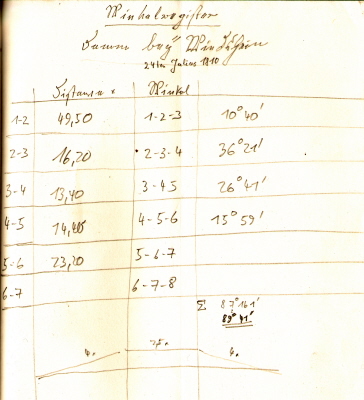 Winkelregister
Damm bey Windheim
24ten Julius 1810
Distanzen Winkel
1-2 49,50 1-2-3 10° 40'
2-3 16,20 2-3-4 36° 21'
3-4 13,40 3-4-5 26° 41'
4-5 14,40 4-5-6 15° 59'
5-6 23,20 5-6-7
6-7 6-7-8
Σ 87° 161'
89° 41'